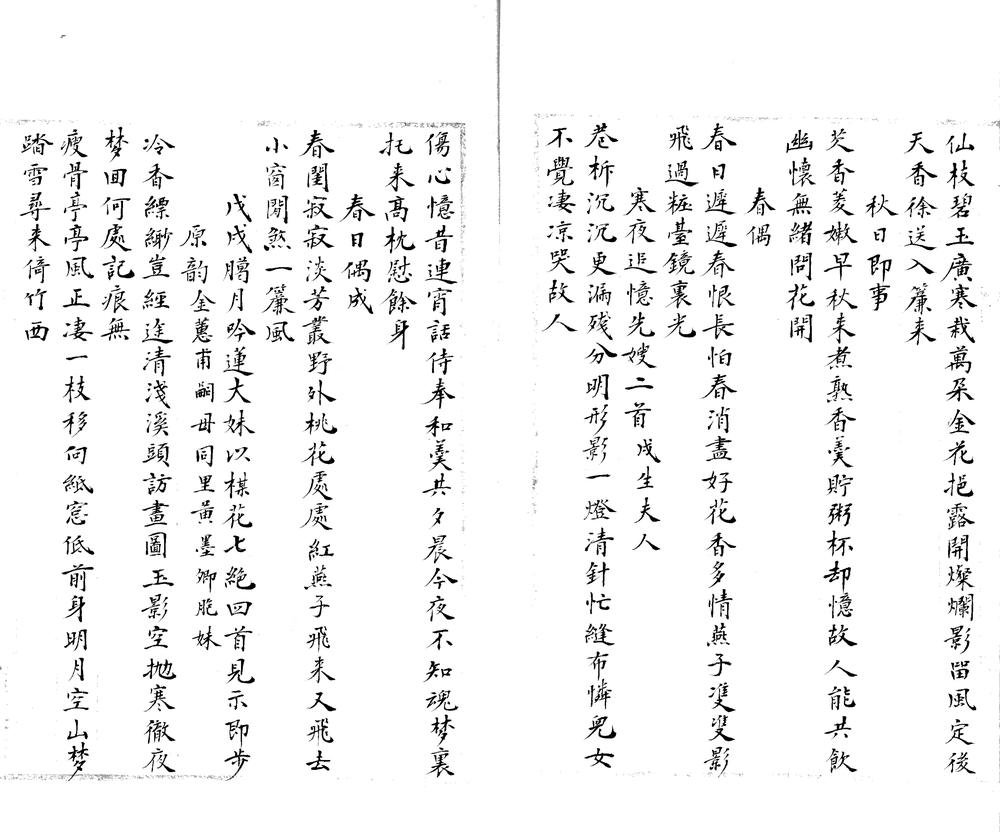 仙枝碧玉廣寒栽萬朵金花挹露開燦爛影畱風定後
天香徐送入簾来
秋日即事
芡香菱嫩早秋来煮熟香羹貯粥杯却憶故人能共飲
幽懷無緒問花開
春偶
春日遲遲春恨長怕春消盡好花香多情燕子雙雙影
飛過粧臺鏡裏光
寒夜追憶先嫂二首戍生夫人
巷柝沉沉更漏殘分明形影一燈清針忙縫布憐兒女
不覺凄凉哭故人
傷心憶昔連宵話侍奉和羹共夕晨今夜不知魂梦裏
托来髙枕慰餘身
春日偶成
春閨寂寂淡芳叢野外桃花處處紅燕子飛来又飛去
小窗閒煞一簾風
戊戌臈月吟蓮大妹以楳花七絶四首見示即步
原韵金蕙甫嗣母同里黄墨卿胞妹
冷香縹緲豈經塗清淺溪頭訪畫圖玉影空抛寒徹夜
梦回何處記痕無
瘦骨亭亭風正凄一枝移向紙窓低前身明月空山梦
踏雪尋来倚竹西